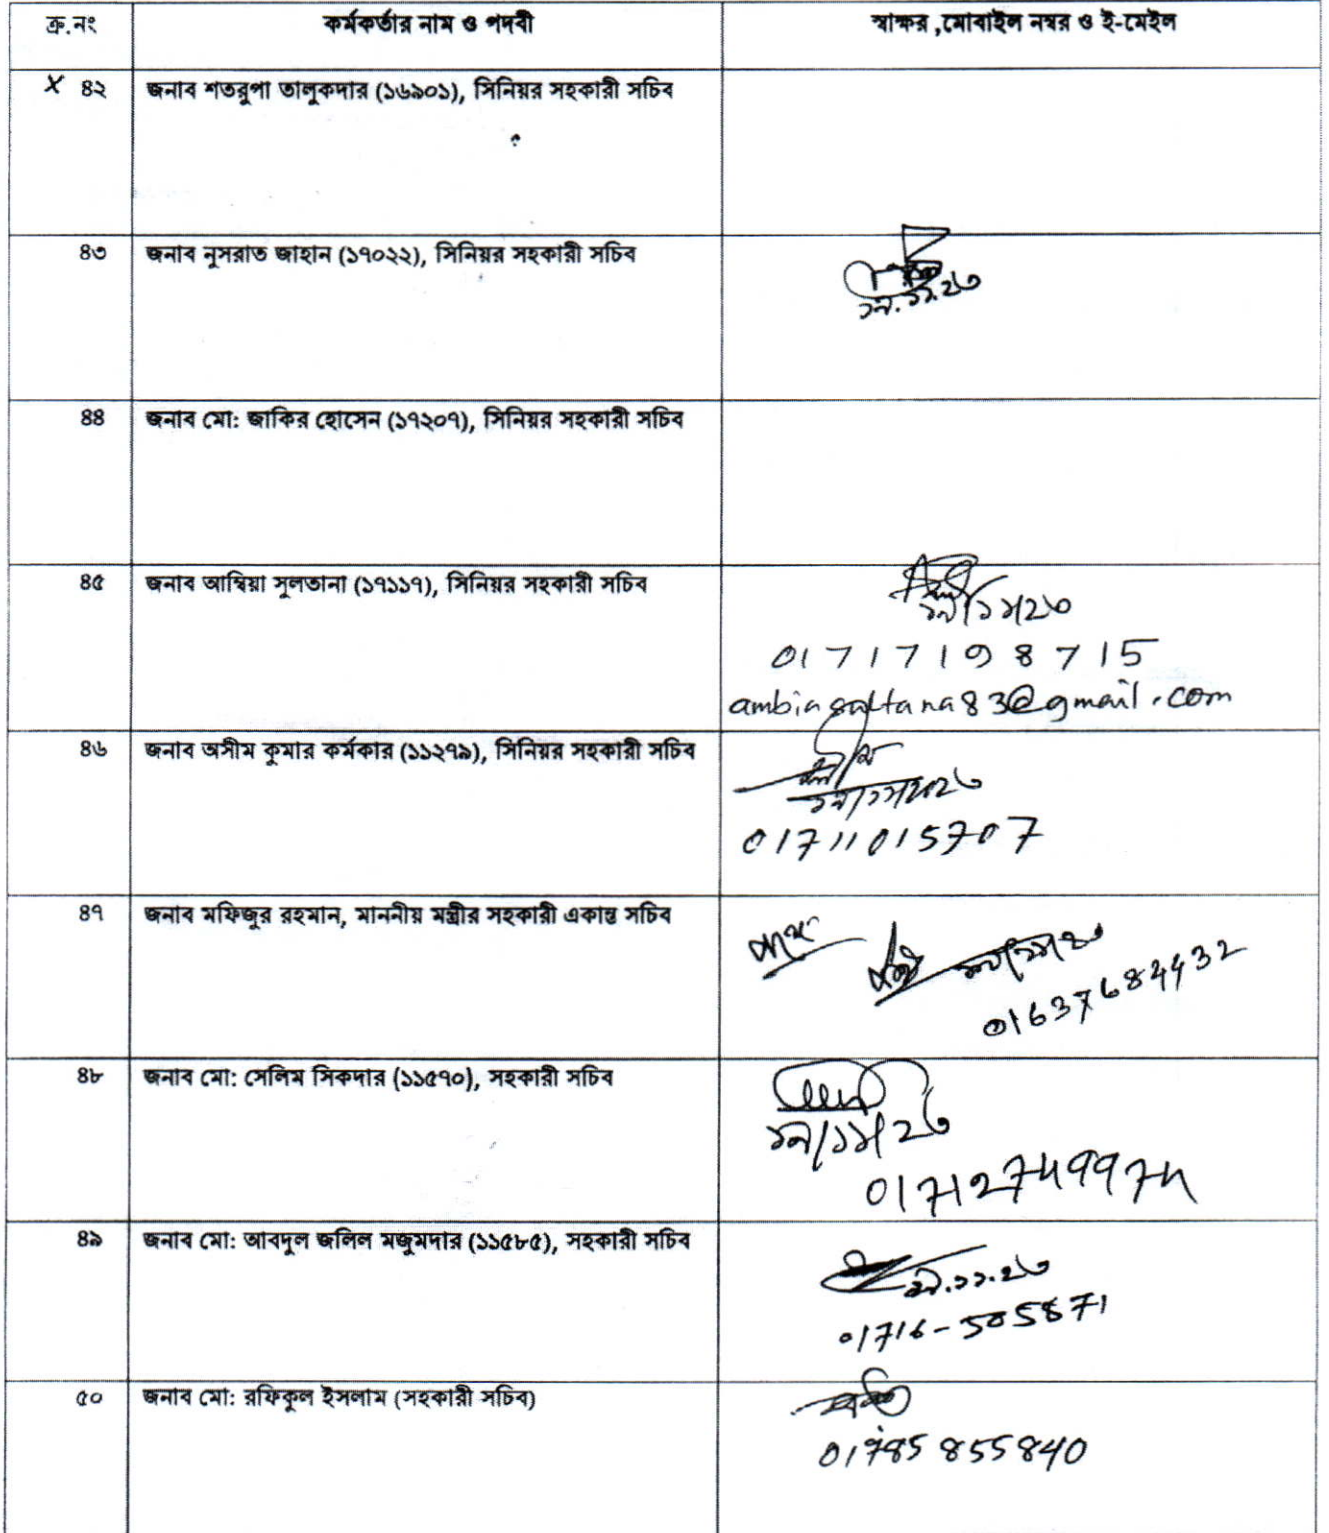 ক্র.নং কর্মকর্তার নাম ও পদবী স্বাক্ষর ,মোবাইল নম্বর ও ই-মেইল
X ৪২ জনাব শতরুপা তালুকদার (১৬৯০১), সিনিয়র সহকারী সচিব
৪৩ জনাব নুসরাত জাহান (১৭০২২), সিনিয়র সহকারী সচিব
১৯.১১.২৩
৪৪ জনাব মো: জাকির হোসেন (১৭২০৭), সিনিয়র সহকারী সচিব
৪৫ জনাব আম্বিয়া সুলতানা (১৭১১৭), সিনিয়র সহকারী সচিব
১৯/১১/২৩
01717198715
ambiasultana83@gmail.com
৪৬ জনাব অসীম কুমার কর্মকার (১১২৭৯), সিনিয়র সহকারী সচিব
01711015707
৪৭ জনাব মফিজুর রহমান, মাননীয় মন্ত্রীর সহকারী একান্ত সচিব
01637684432
৪৮ জনাব মো: সেলিম সিকদার (১১৫৭০), সহকারী সচিব
১৯/১১/২৩
01712749974
৪৯ জনাব মো: আবদুল জলিল মজুমদার (১১৫৮৫), সহকারী সচিব
১৯.১১.২৩
01716-505871
৫০ জনাব মো: রফিকুল ইসলাম (সহকারী সচিব)
01785855840